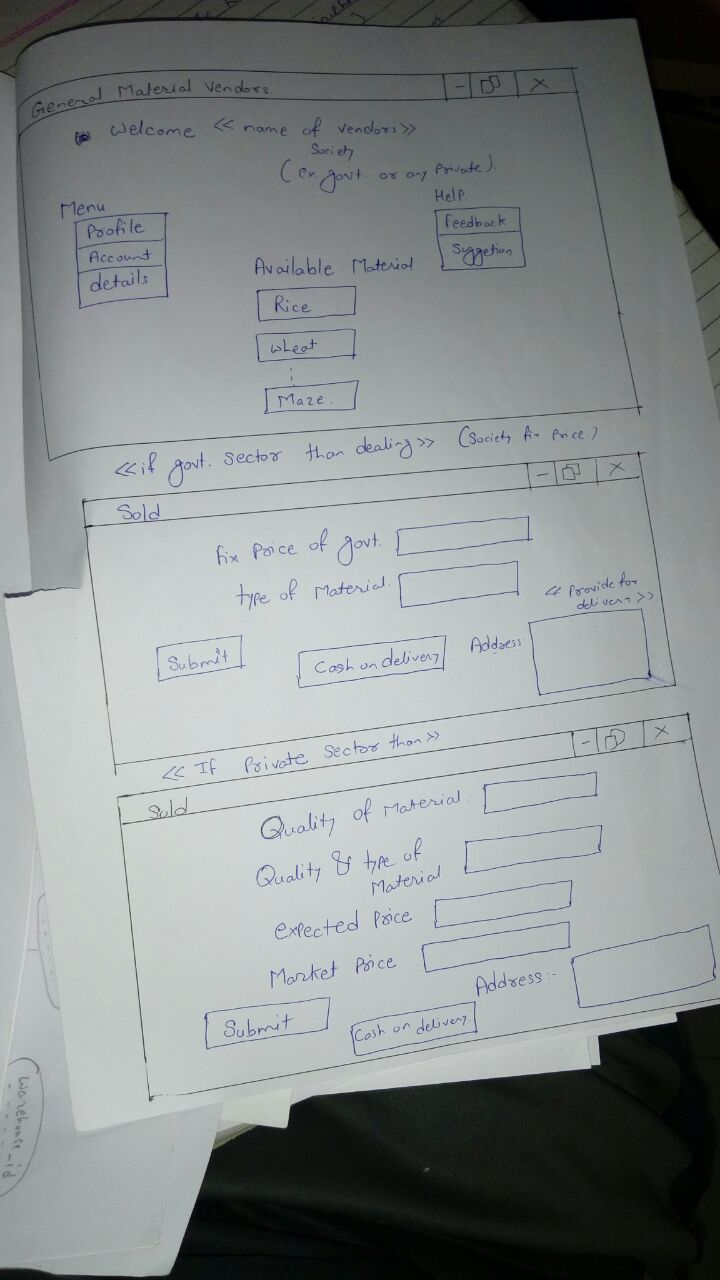 General Material Vendors - X
Welcome << name of vendors>>
Society
(ex. govt. or any Private).
Menu
Help.
Profile
Account
details
feedback
Suggetion
Available Material
Rice
wheat
Maze.
<<if govt. Sector than dealing>> (Society fix Price.)
Sold - X
fix Price of govt.
type of Material.
<< Provide for
delivery >>
Submit
Cash on delivery
Address
<< If Private Sector than>>
Sold - X
Quality of Material.
Quality & type of
Material.
expected Price
Market Price
Address:-
Submit
Cash on delivery.
warehouse_id